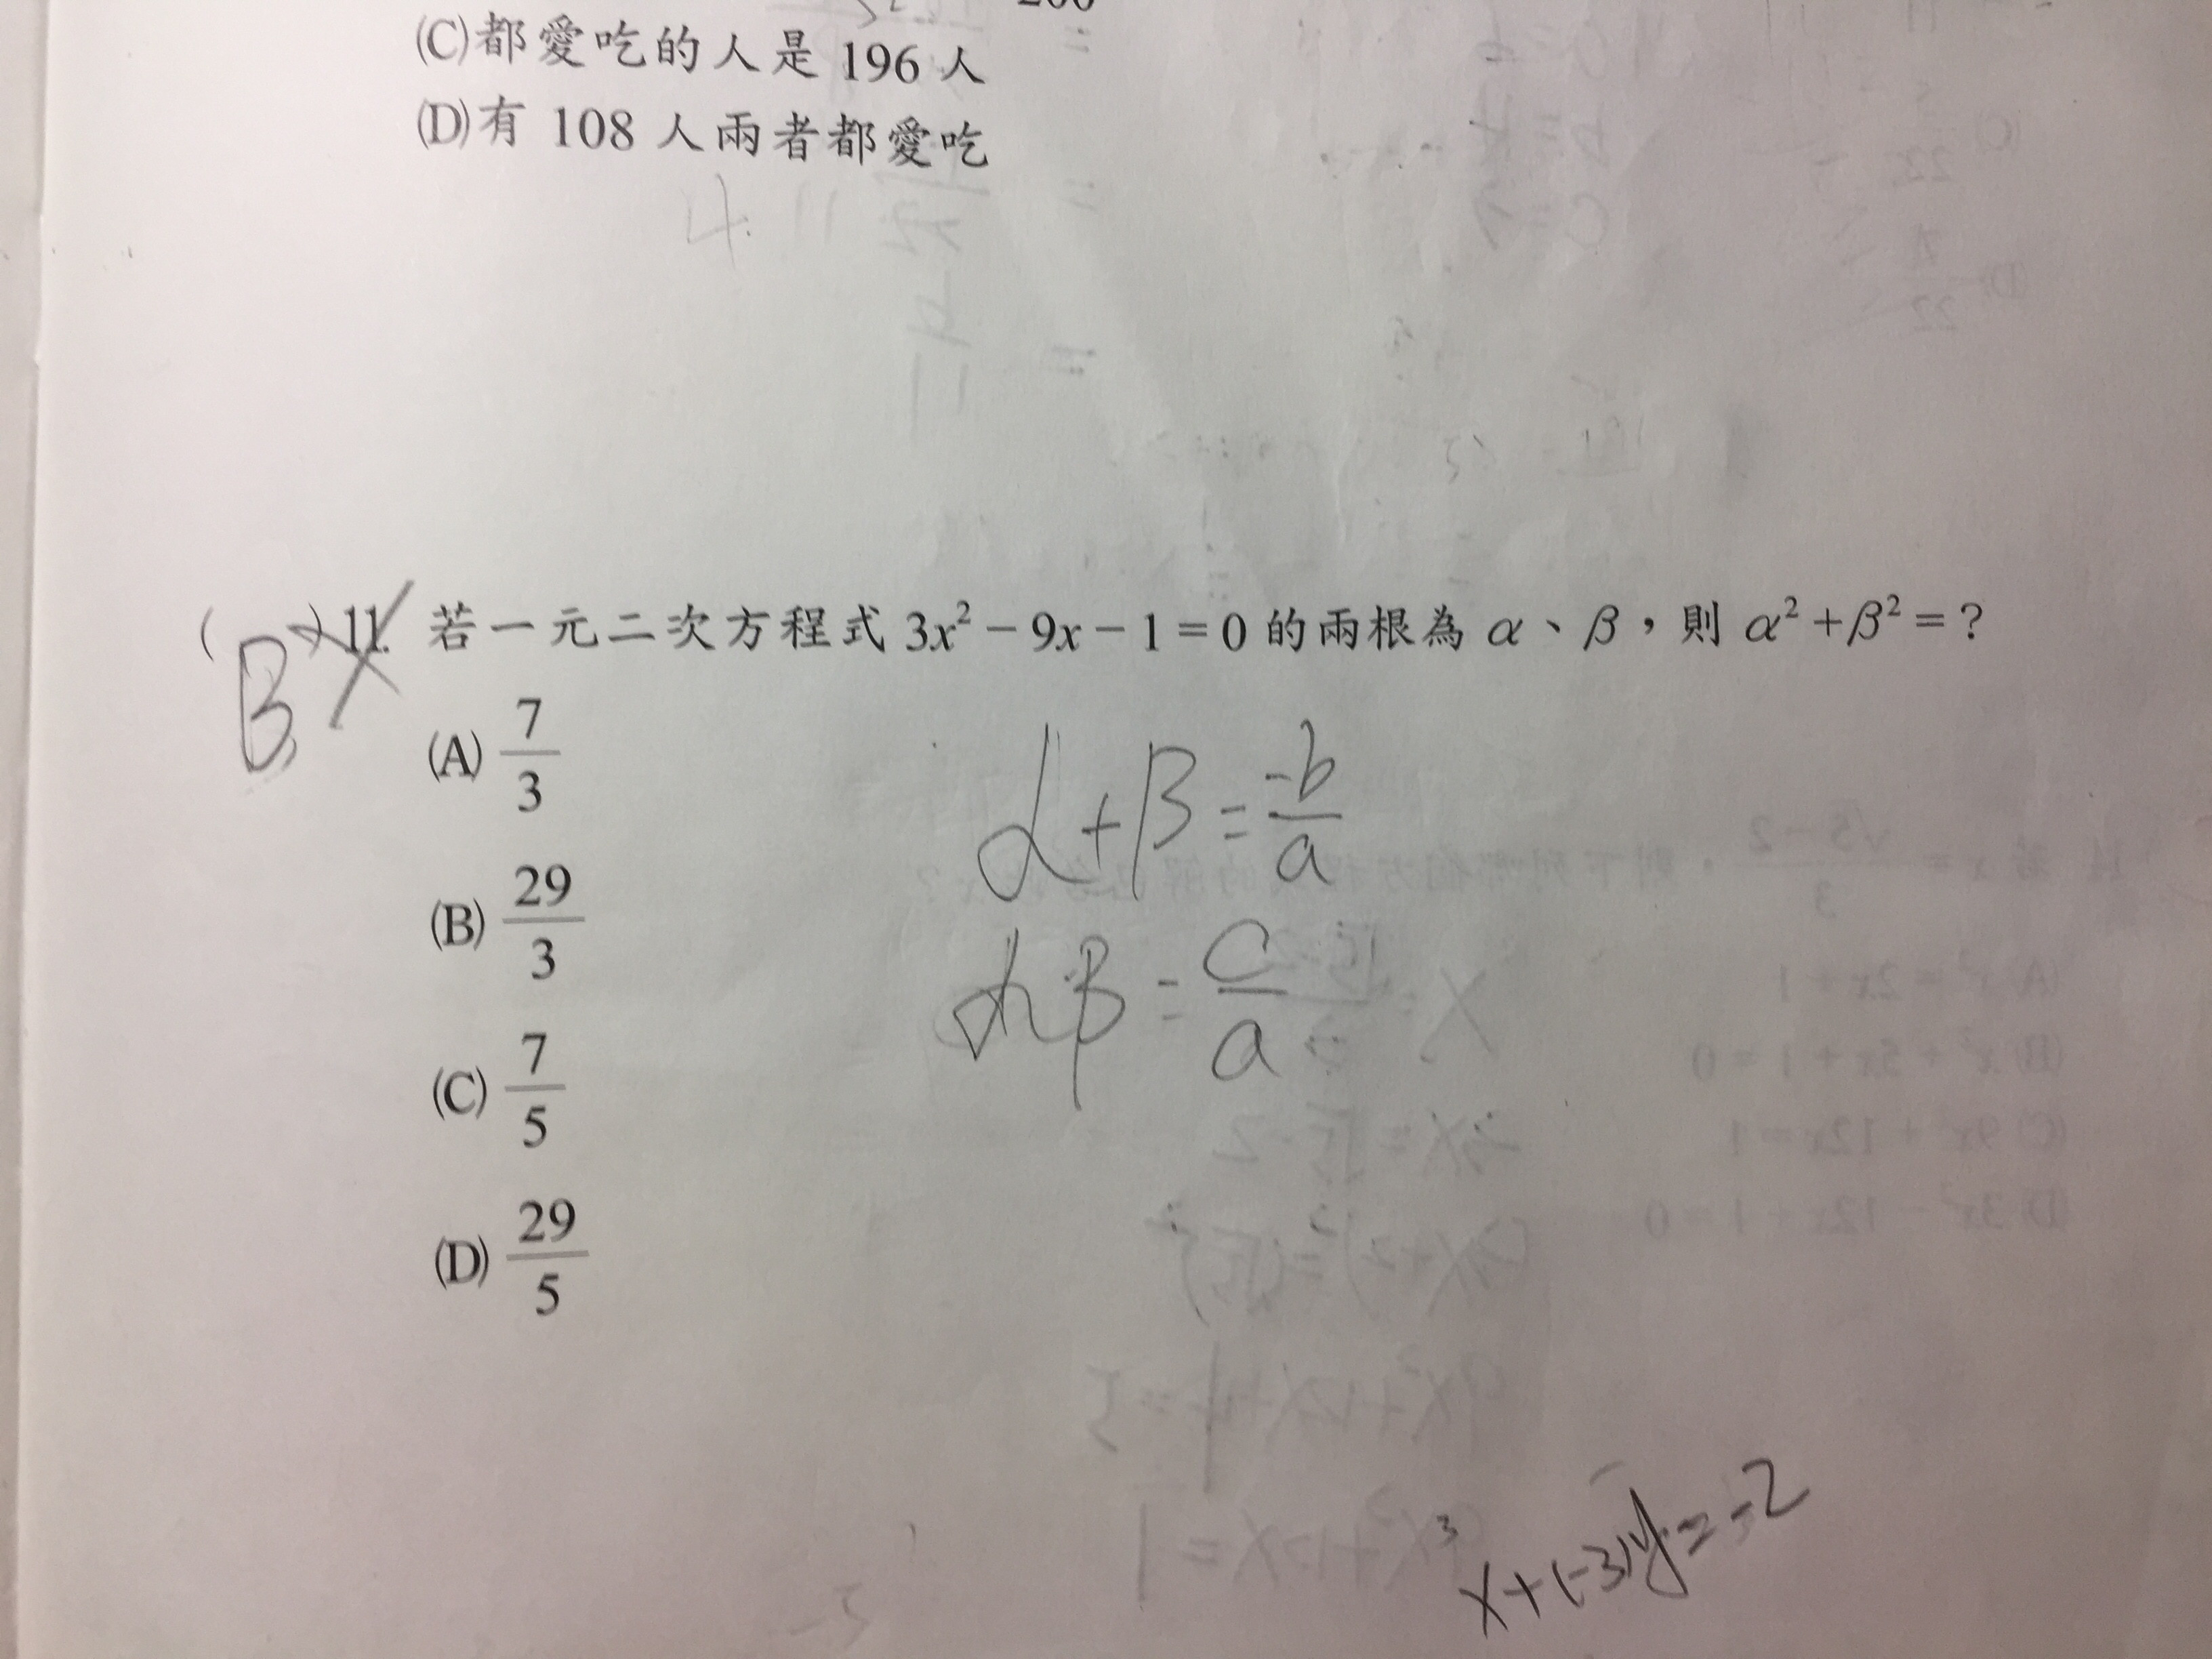 (C)都愛吃的人是 196 人
(D)有 108 人兩者都愛吃
4
( B ) 11. 若一元二次方程式 3x² − 9x − 1 = 0 的兩根為 α、β，則 α² + β² = ?
(A) 7/3
(B) 29/3
(C) 7/5
(D) 29/5
α+β = -b/a
αβ = c/a
x+(-3)y=-2